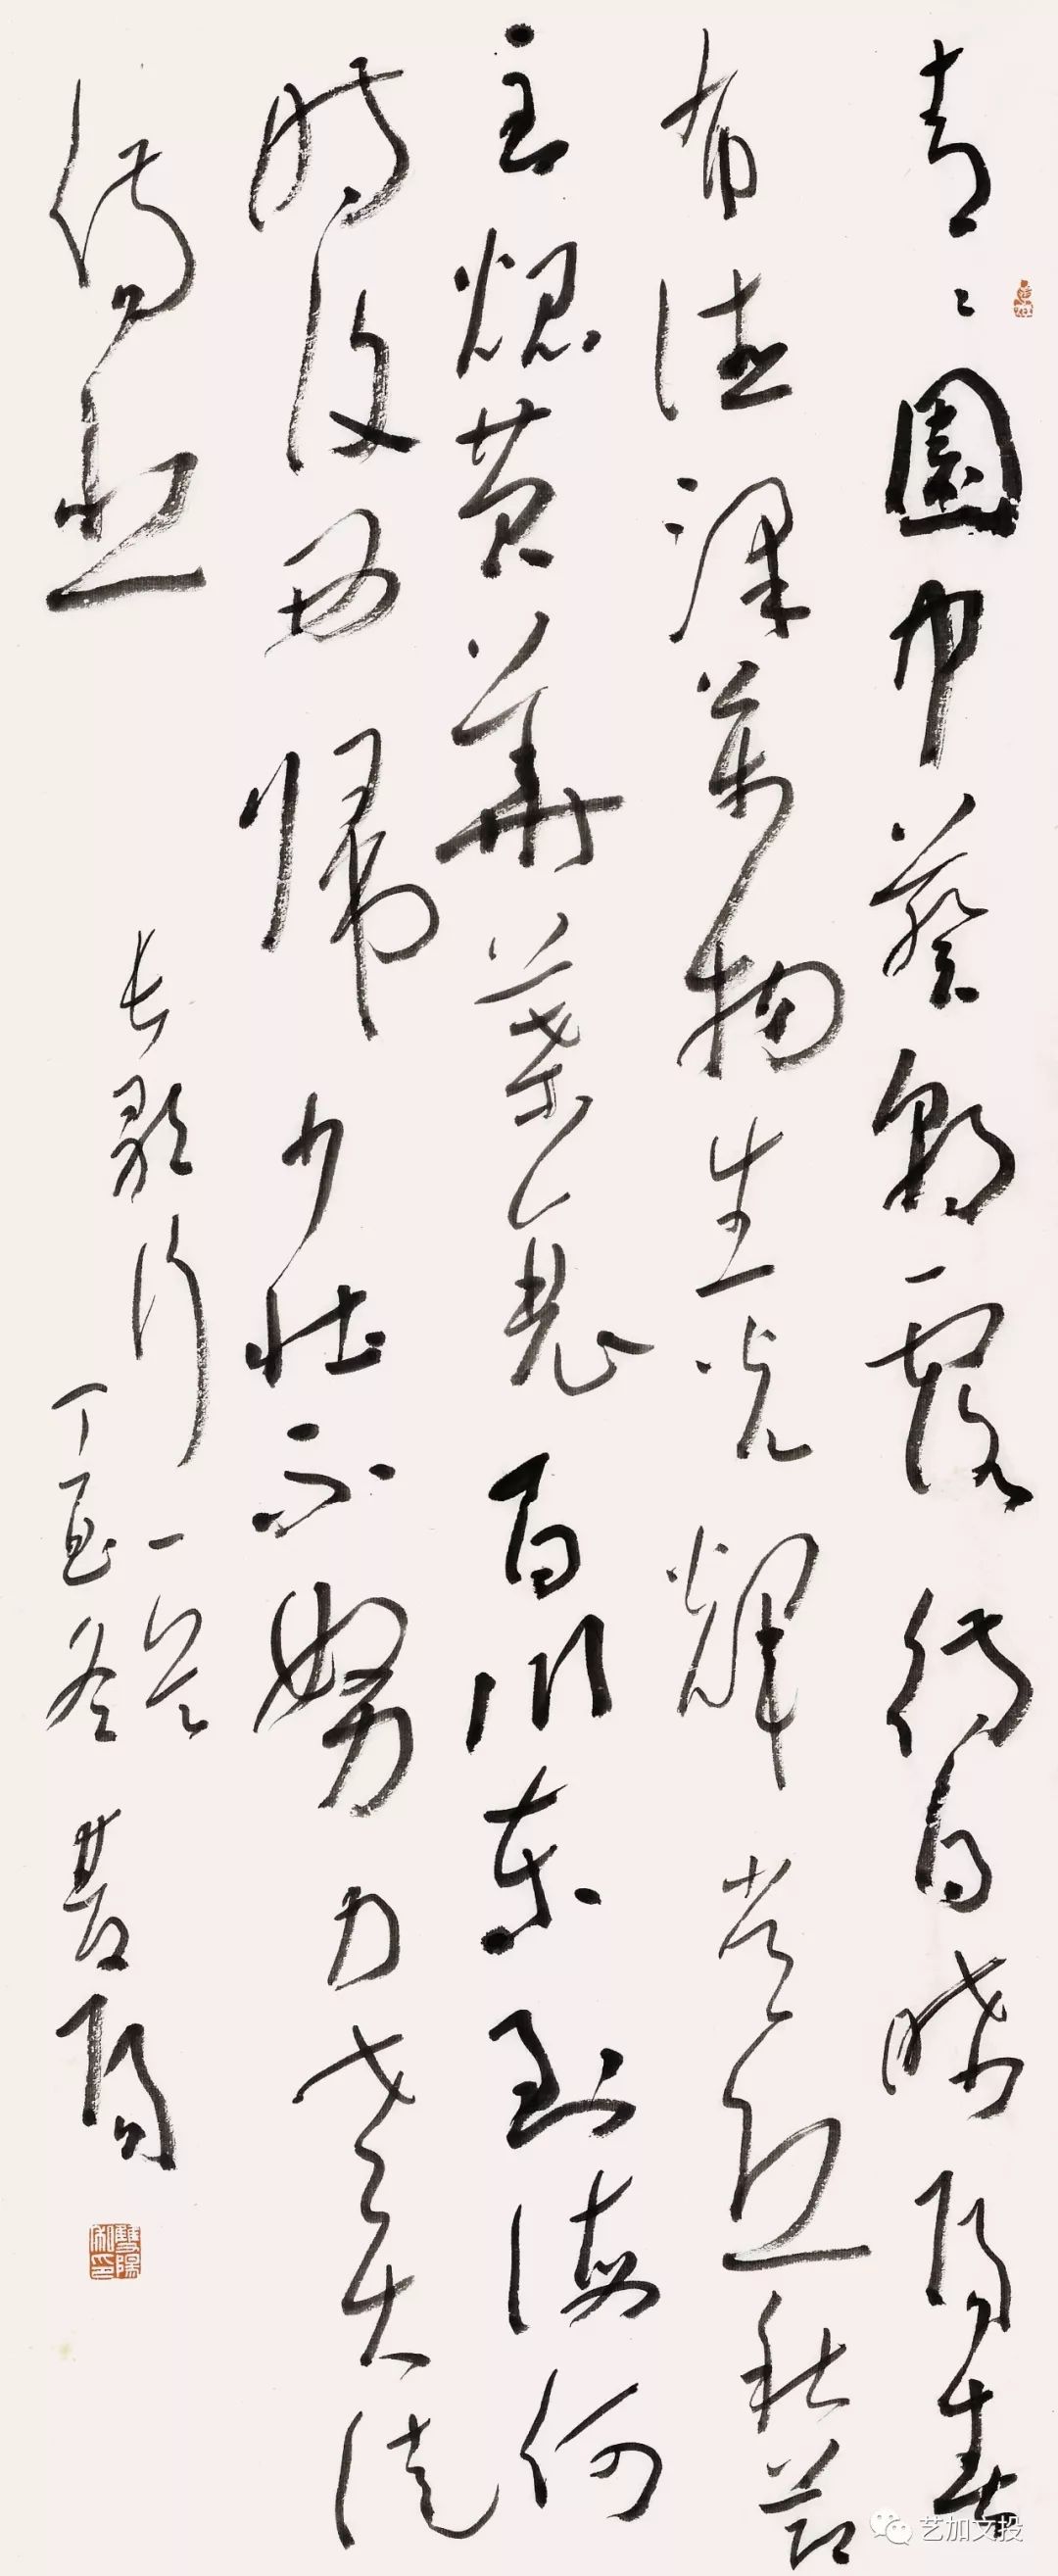 青〻園中葵朝露待日晞陽春
布德澤萬物生光輝常恐秋節
至焜黃華葉衰百川東到海何
時復西歸少壯不努力老大徒
傷悲
長歌行一首
丁酉冬 雙陽
雙陽私印
艺加文投